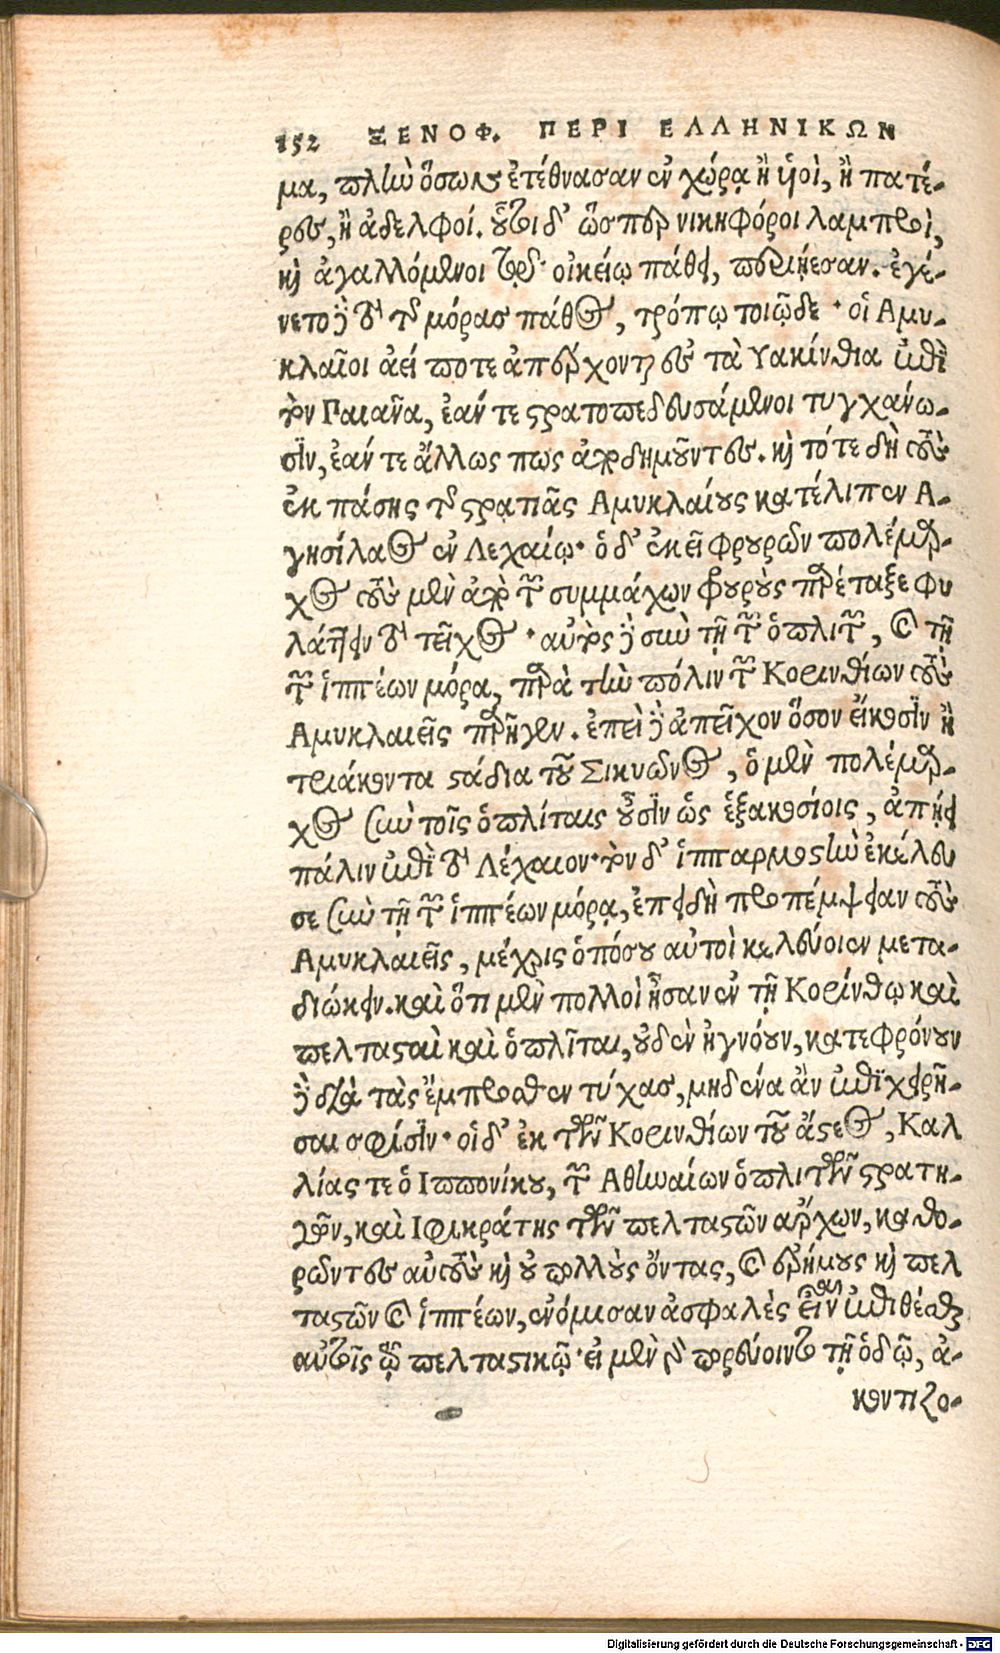 152 ΞΕΝΟΦ. ΠΕΡΙ ΕΛΛΗΝΙΚΩΝ
μα, πλὴν ὅσων ἐτέθνασαν ἐν χώρᾳ ἢ ὑοὶ, ἢ πατέ-
ρες, ἢ ἀδελφοί. οὗτοι δ' ὥσπερ νικηφόροι λαμπροὶ,
καὶ ἀγαλλόμενοι τῷ οἰκείῳ πάθει, περιῄεσαν. ἐγέ-
νετο δὲ τὸ τῆς μόρας πάθος, τρόπῳ τοιῷδε· οἱ Αμυ-
κλαῖοι ἀεί ποτε ἀπέρχονται εἰς τὰ Υακίνθια ἐπὶ
τὸν Παιᾶνα, ἐάν τε στρατοπεδευσάμενοι τυγχάνω-
σιν, ἐάν τε ἄλλως πως ἀποδημοῦντες. καὶ τότε δὴ τοὺς
ἐκ πάσης τῆς στρατιᾶς Αμυκλαίους κατέλιπεν Α-
γησίλαος ἐν Λεχαίῳ· ὁ δ' ἐκεῖ φρουρῶν πολέμαρ-
χος τοὺς μὲν ἀπὸ τῶν συμμάχων φρουροὺς παρέταξε φυ
λάττειν τὸ τεῖχος· αὐτὸς δὲ σὺν τῇ τῶν ὁπλιτῶν, καὶ τῇ
τῶν ἱππέων μόρᾳ, παρὰ τὴν πόλιν τῶν Κορινθίων τοὺς
Αμυκλαιεῖς παρῆγεν. ἐπεὶ δὲ ἀπεῖχον ὅσον εἴκοσιν ἢ
τριάκοντα στάδια τοῦ Σικυῶνος, ὁ μὲν πολέμαρ-
χος σὺν τοῖς ὁπλίταις οὖσιν ὡς ἑξακοσίοις, ἀπῄει
πάλιν ἐπὶ τὸ Λέχαιον· τὸν δ' ἱππαρμοστὴν ἐκέλευ
σε σὺν τῇ τῶν ἱππέων μόρᾳ, ἐπειδὴ προπέμψειαν τοὺς
Αμυκλαιεῖς, μέχρις ὁπόσου αὐτοὶ κελεύοιεν μετα-
διώκειν. καὶ ὅτι μὲν πολλοὶ ἦσαν ἐν τῇ Κορίνθῳ καὶ
πελτασταὶ καὶ ὁπλῖται, οὐδὲν ἠγνόουν, κατεφρόνουν
δὲ διὰ τὰς ἔμπροσθεν τύχας, μηδένα ἂν ἐπιχειρῆ-
σαι σφίσιν· οἱ δ' ἐκ τῶν Κορινθίων τοῦ ἄστεος, Καλ
λίας τε ὁ Ιππονίκου, τῶν Αθηναίων ὁπλιτῶν στρατη-
γῶν, καὶ Ιφικράτης τῶν πελταστῶν ἄρχων, καθο-
ρῶντες αὐτοὺς καὶ οὐ πολλοὺς ὄντας, καὶ ἐρήμους καὶ πελ
ταστῶν καὶ ἱππέων, ἐνόμισαν ἀσφαλὲς εἶναι ἐπιθέσθαι
αὐτοῖς τῷ πελταστικῷ· εἰ μὲν γὰρ πορεύοιντο τῇ ὁδῷ, ἀ-
κοντιζο-
Digitalisierung gefördert durch die Deutsche Forschungsgemeinschaft - DFG